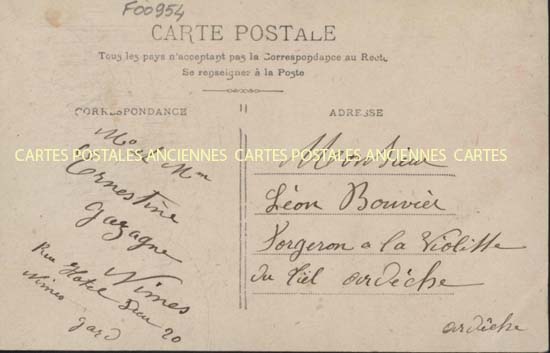 F00954
CARTE POSTALE
Tous les pays n'acceptant pas la Correspondance au Recto
Se renseigner à la Poste
CORRESPONDANCE
Mr et Mm
Ernestine
gazagne
Nimes
Rue Hotel Dieu 20
Nimes
gard
ADRESSE
Monsieur
Léon Bouvier
Forgeron a la Violette
du Teil ardèche
ardèche
CARTES POSTALES ANCIENNES CARTES POSTALES ANCIENNES CARTES